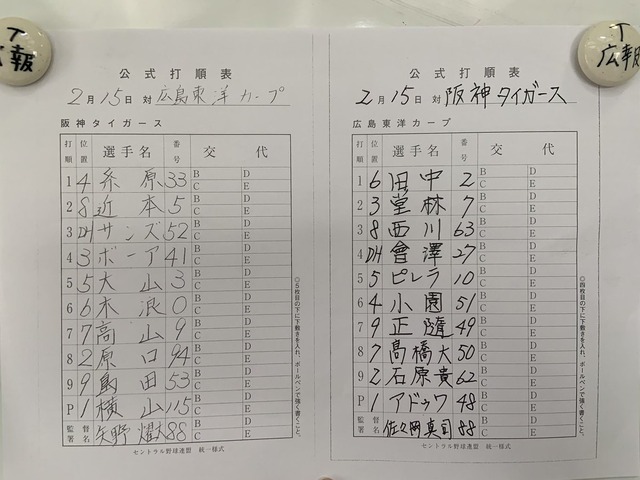 T
広報
T
広報
公式打順表
2月15日 対 広島東洋カープ
阪神タイガース
打順 位置 選手名 番号 交代
1 4 糸原 33 B C D E
2 8 近本 5 B C D E
3 DH サンズ 52 B C D E
4 3 ボーア 41 B C D E
5 5 大山 3 B C D E
6 6 木浪 0 B C D E
7 7 高山 9 B C D E
8 2 原口 94 B C D E
9 9 島田 53 B C D E
P 1 横山 115 B C D E
監督署名 矢野燿大 88 B C D E
◎五枚目の下に下敷きを入れ、ボールペンで強く書くこと。
セントラル野球連盟 統一様式
公式打順表
2月15日 対 阪神タイガース
広島東洋カープ
打順 位置 選手名 番号 交代
1 6 田中 2 B C D E
2 3 堂林 7 B C D E
3 8 西川 63 B C D E
4 DH 會澤 27 B C D E
5 5 ピレラ 10 B C D E
6 4 小園 51 B C D E
7 9 正隨 49 B C D E
8 7 髙橋大 50 B C D E
9 2 石原貴 62 B C D E
P 1 アドゥワ 48 B C D E
監督署名 佐々岡真司 88 B C D E
◎四枚目の下に下敷きを入れ、ボールペンで強く書くこと。
セントラル野球連盟 統一様式